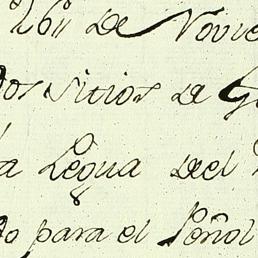 de Novie
dos sitios de G
a Legua del
do para el Señol